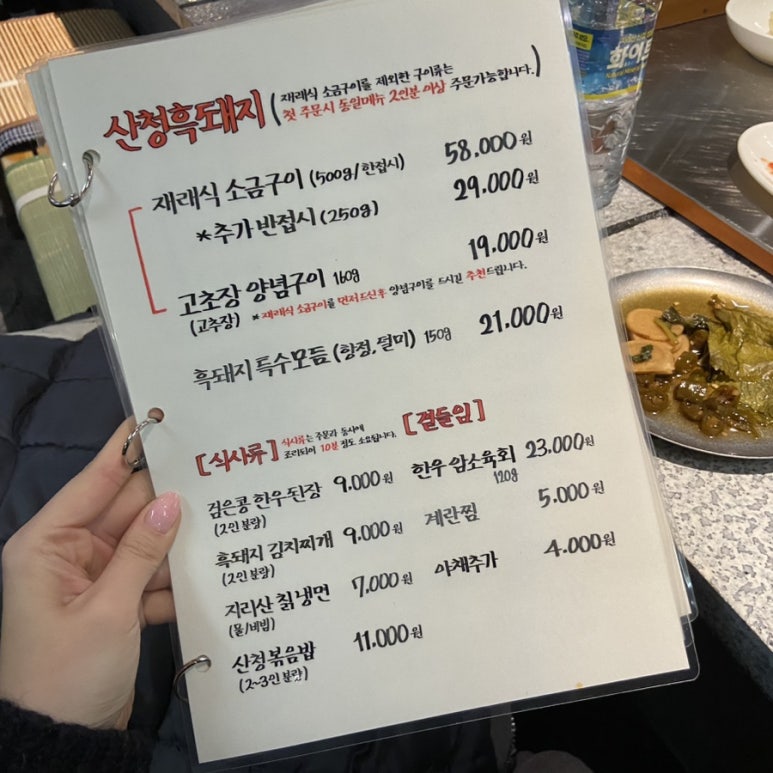 산청흑돼지 (재래식 소금구이를 제외한 구이류는
첫 주문시 동일메뉴 2인분 이상 주문가능합니다.)
재래식 소금구이 (500g/한접시) 58,000원
*추가 반접시 (250g) 29,000원
고초장 양념구이 160g 19,000원
(고추장) *재래식 소금구이를 먼저 드신후 양념구이를 드시길 추천드립니다.
흑돼지 특수모듬 (항정, 덜미) 150g 21,000원
[식사류] 식사류는 주문과 동시에
조리되어 10분 정도 소요됩니다.
검은콩 한우 된장 9,000원
(2인 분량)
흑돼지 김치찌개 9,000원
(2인 분량)
지리산 칡냉면 7,000원
(물/비빔)
산청볶음밥 11,000원
(2~3인 분량)
[곁들임]
한우 암소육회 23,000원
120g
계란찜 5,000원
야채추가 4,000원